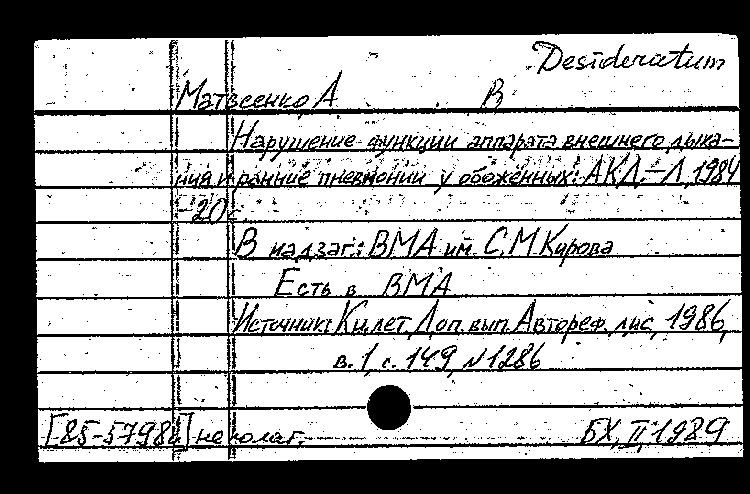 Desideratum
Матвеенко, А. В.
Нарушение функции аппарата внешнего дыха-
ния и ранние пневмонии у обожжённых: АКД. – Л., 1984
– 20 с.
В надзаг.: ВМА им. С. М. Кирова
Есть в ВМА
Источник: Кн. лет. Доп. вып. Автореф. дис., 1986,
в. 1, с. 149, № 1286
[85-5798] не полаг.
БХ, II, 1989